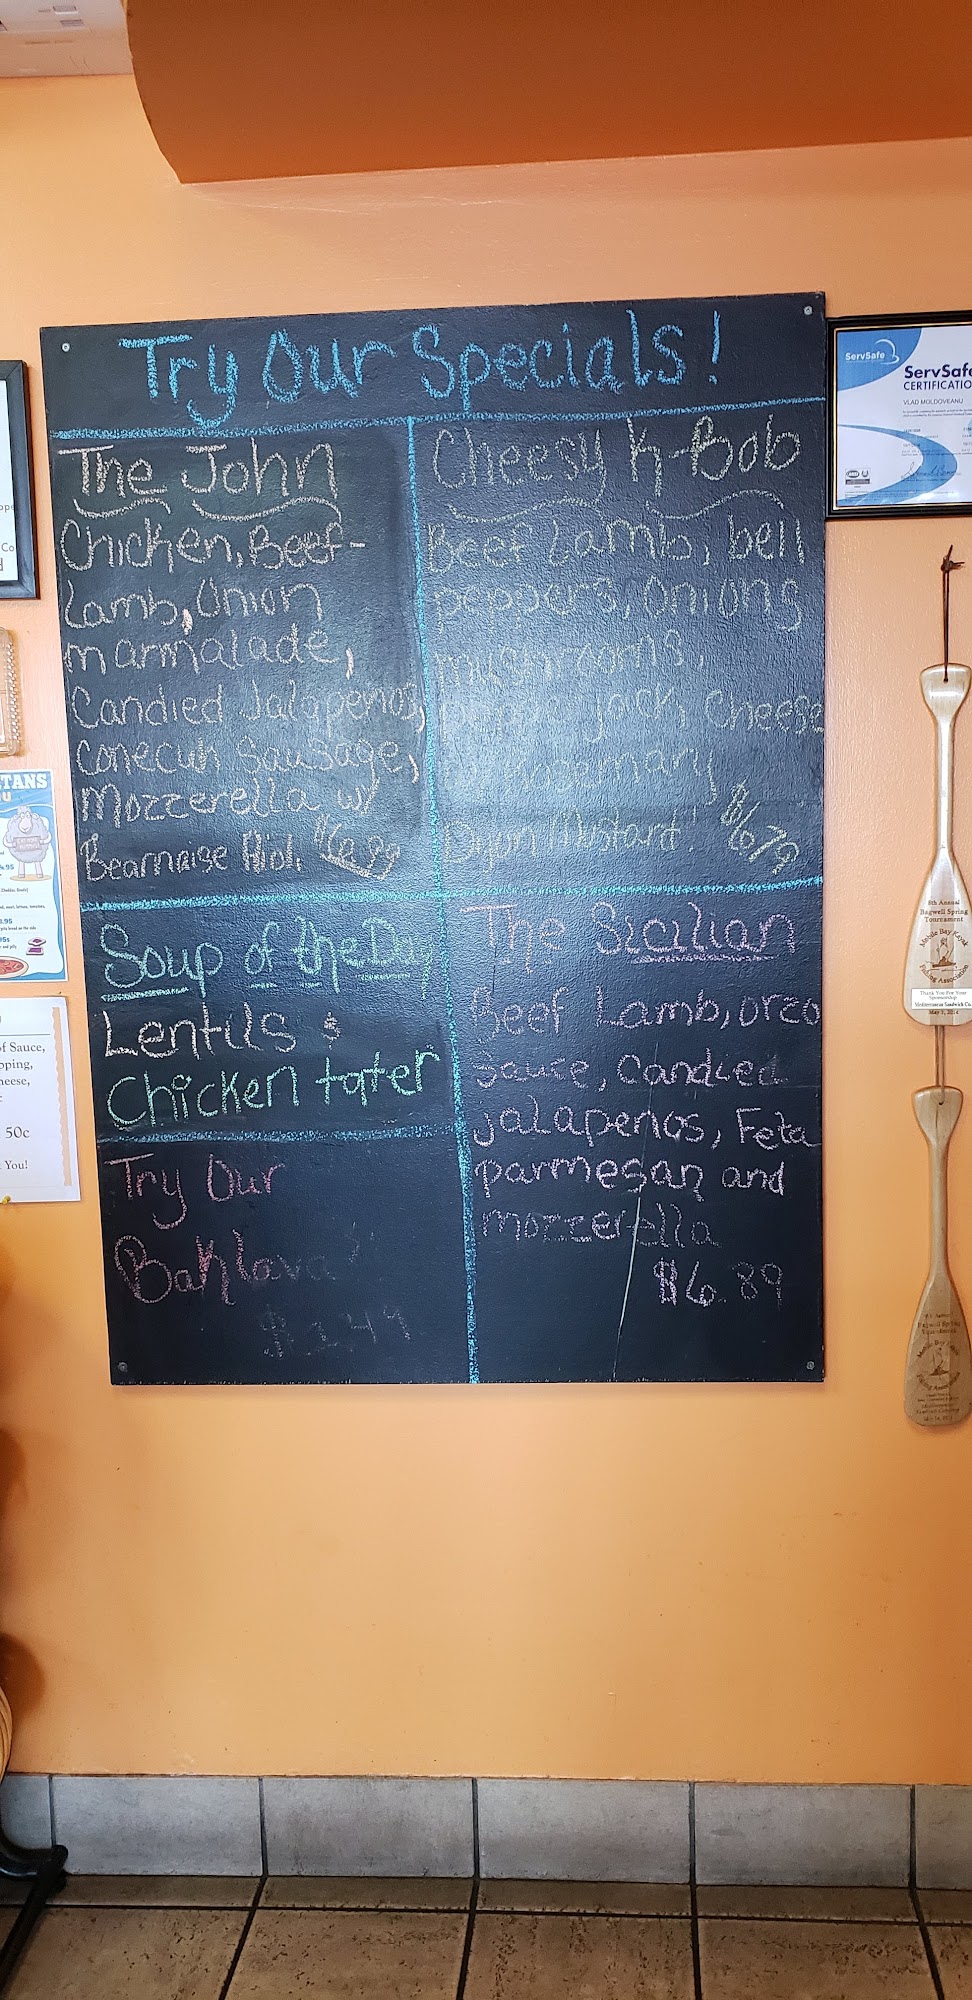 Try Our Specials!
The John
Chicken, Beef-
Lamb, Onion
marmalade,
Candied Jalapenos,
Conecuh Sausage,
Mozzerella w/
Bearnaise Aioli $6.99
Cheesy K-Bob
Beef Lamb, bell
peppers, Onions
mushrooms,
jack cheese
Rosemary
Mustard! $6.79
Soup of the D
Lentils &
Chicken tater
Try Our
Baklava
$2.49
The Sicilian
Beef Lamb, orzo
Sauce, Candied
jalapenos, Feta
parmesan and
mozzerella
$6.89
ServSafe
ServSafe
CERTIFICATIO
VLAD MOLDOVEANU
8th Annual
Bagwell Spring
Tournament
Mobile Bay Kayak
Fishing Association
Thank You For Your
Sponsorship
Mediterranean Sandwich Co.
May 3, 2014
Bagwell Spring
Tournament
TANS
of Sauce,
pping,
heese,
50c
You!